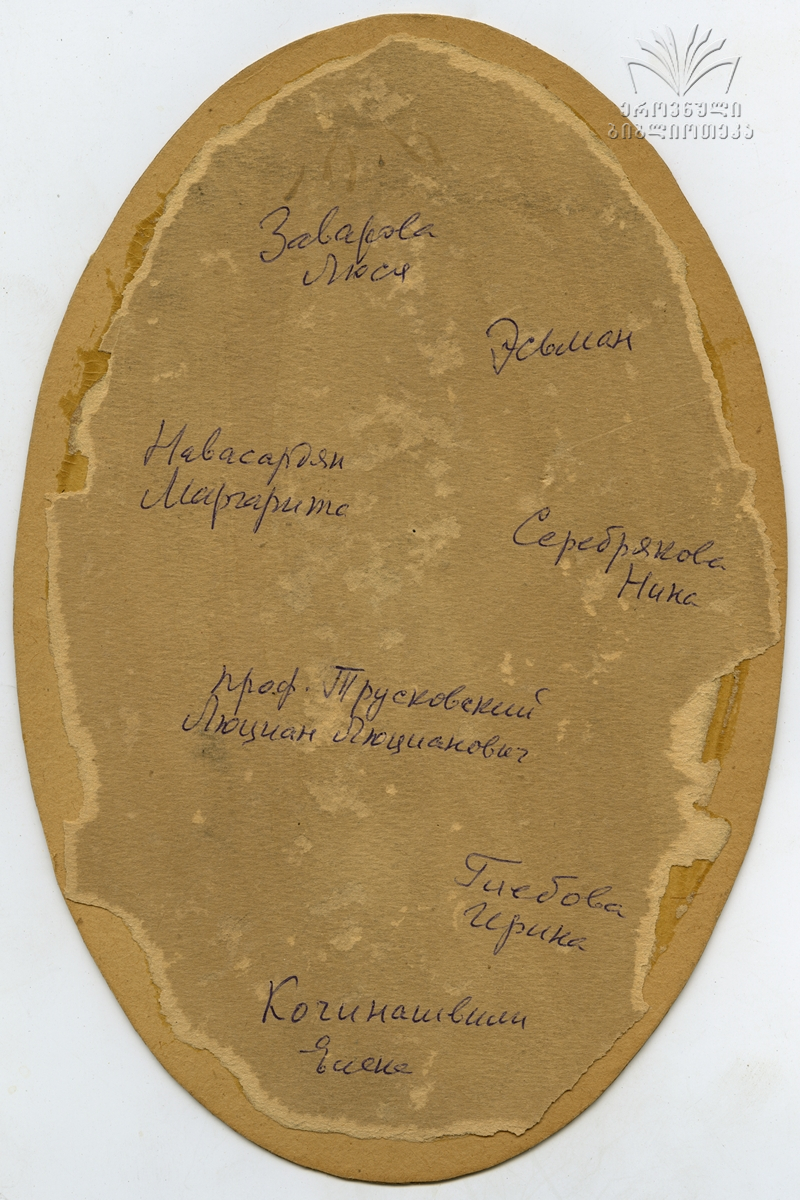 ეროვნული
ბიბლიოთეკა
Заварова
Люся
Эсьман
Навасардян
Маргарита
Серебрякова
Нина
проф. Трусковский
Люциан Люцианович
Глебова
Ирина
Кочинашвили
Елена